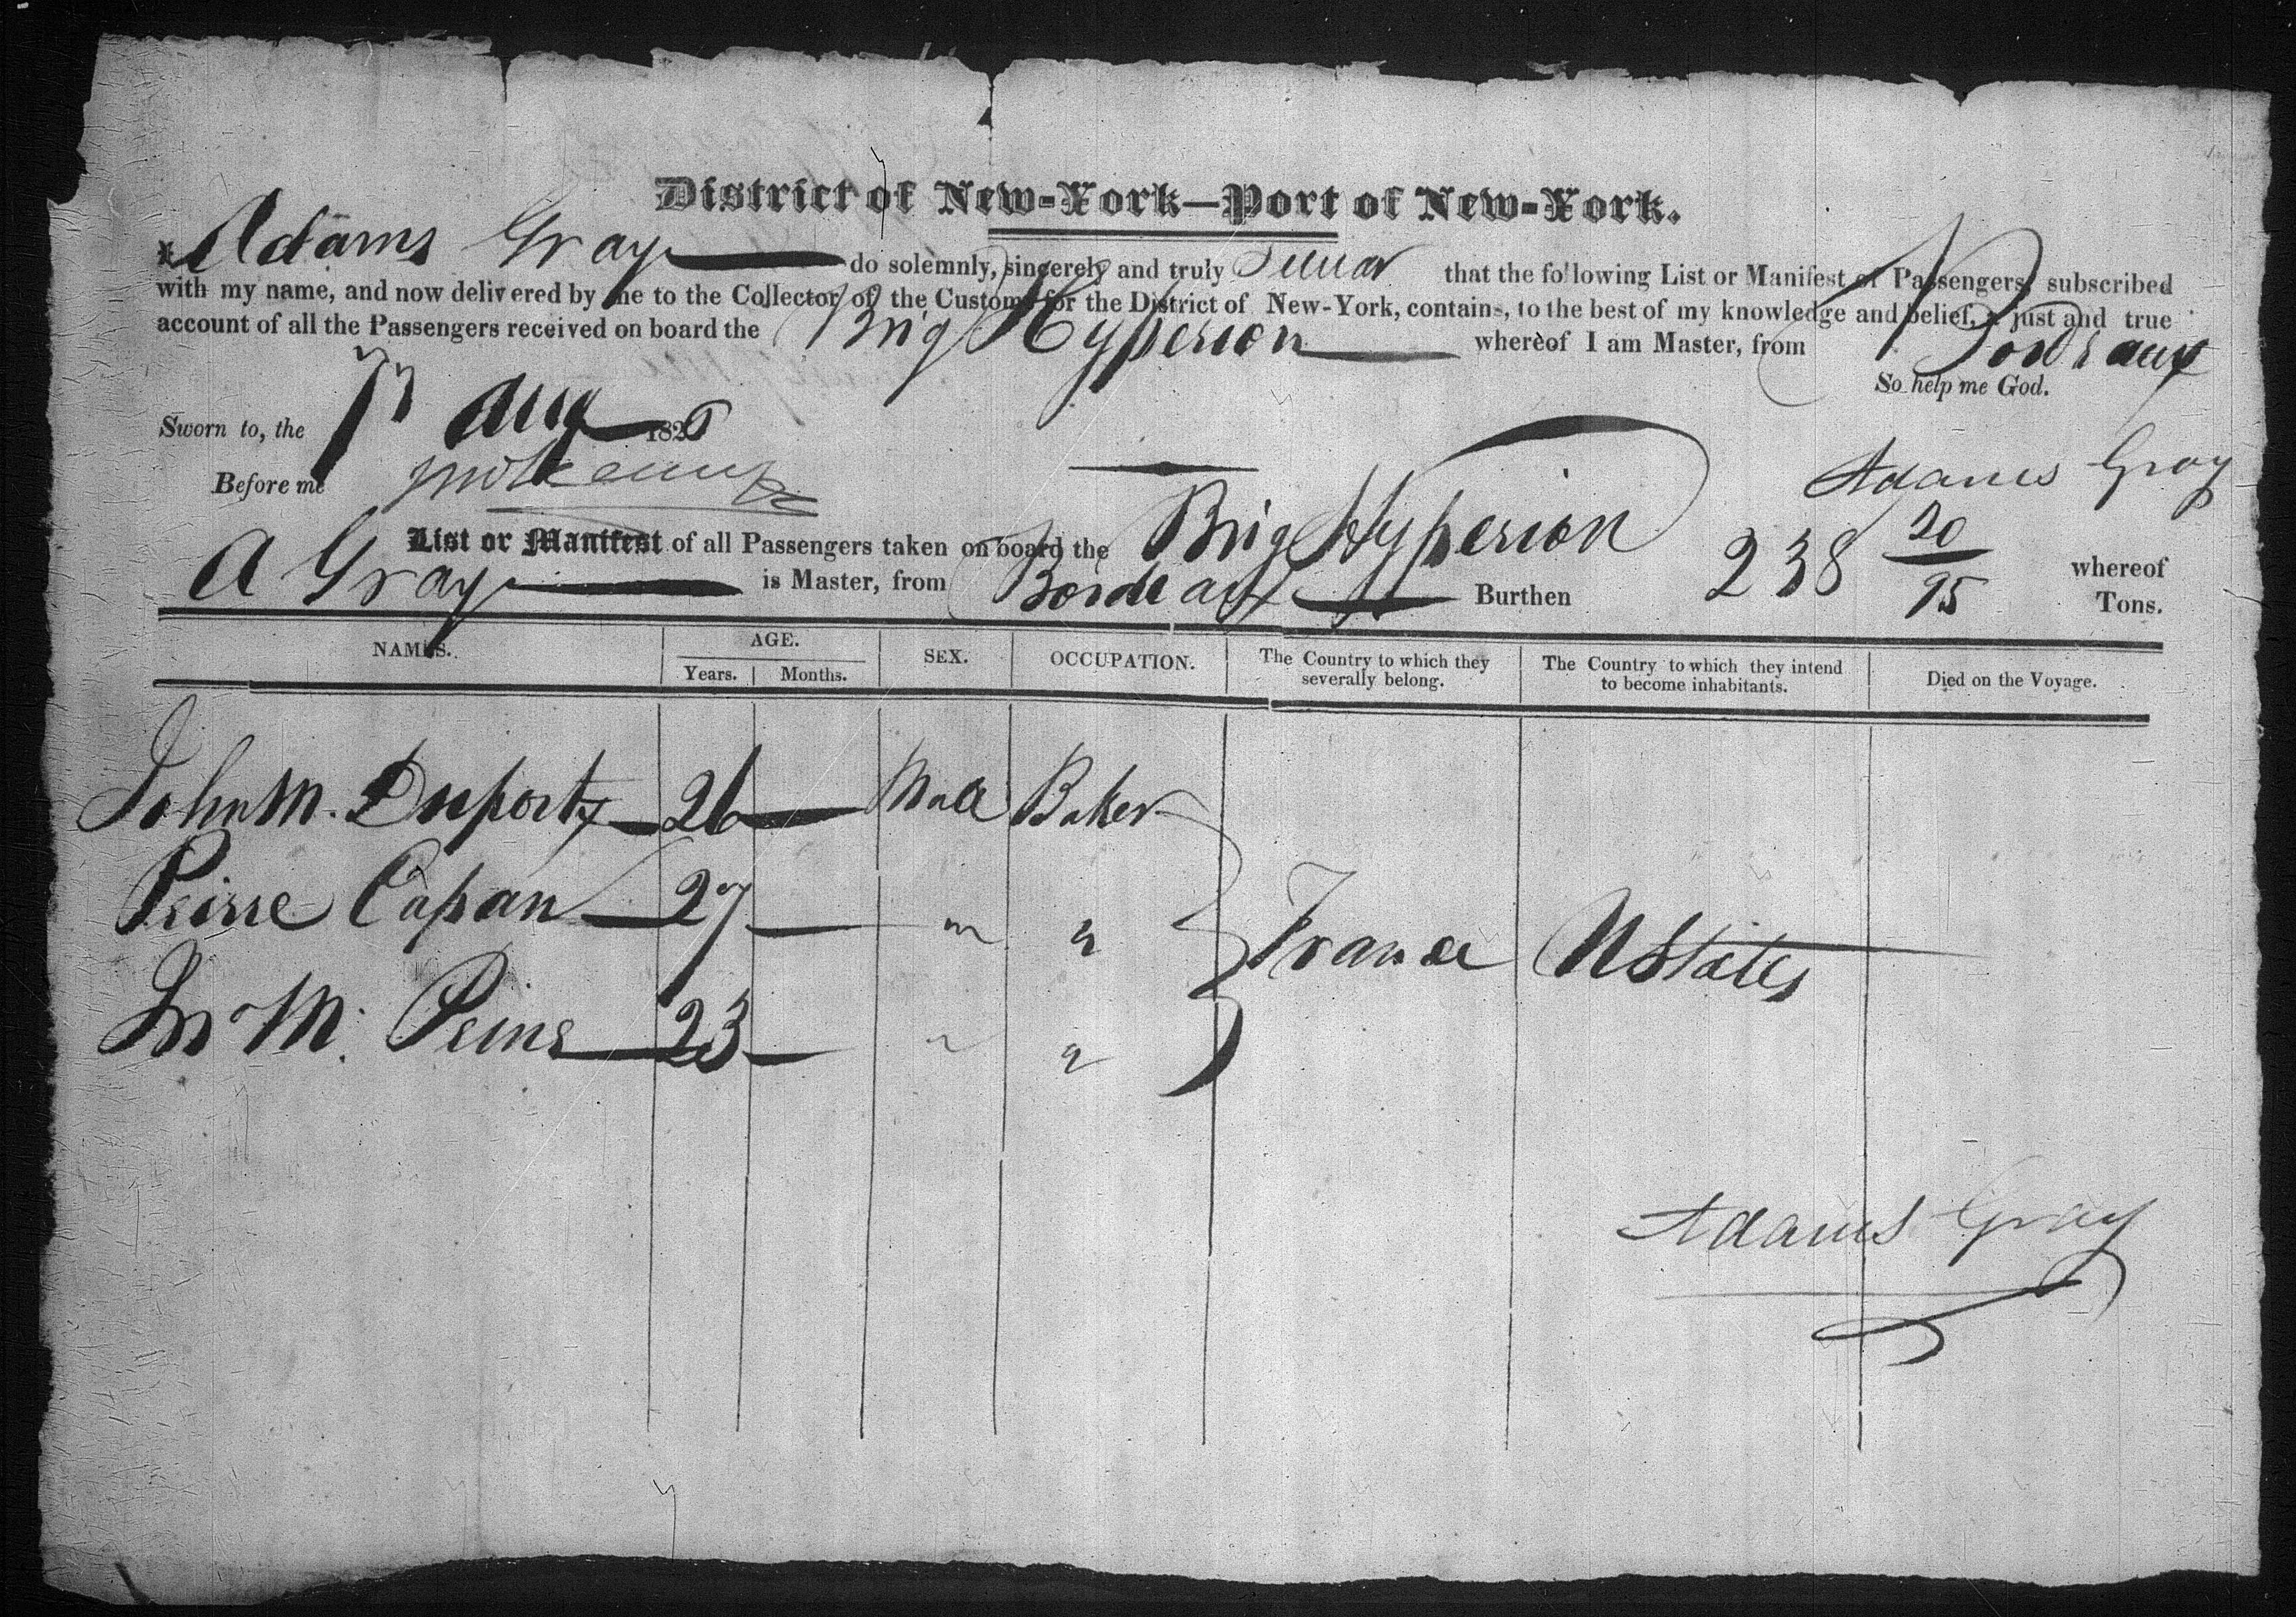 District of New-York—Port of New-York.
I, Adams Gray do solemnly, sincerely and truly Swear that the following List or Manifest of Passengers, subscribed
with my name, and now delivered by me to the Collector of the Customs for the District of New-York, contains, to the best of my knowledge and belief, a just and true
account of all the Passengers received on board the Brig Hyperion whereof I am Master, from Bordeaux
So help me God.
Sworn to, the Aug 182
Before me
Adams Gray
List or Manifest of all Passengers taken on board the Brig Hyperion whereof
A Gray is Master, from Bordeaux Burthen 238 20/95 Tons.
NAMES. AGE. SEX. OCCUPATION. The Country to which they severally belong. The Country to which they intend to become inhabitants. Died on the Voyage.
Years. Months.
John M. Duport 26 Male Baker
Peirre Capan 27 " "
Jno M. Peirre 23 " "
France U States
Adams Gray